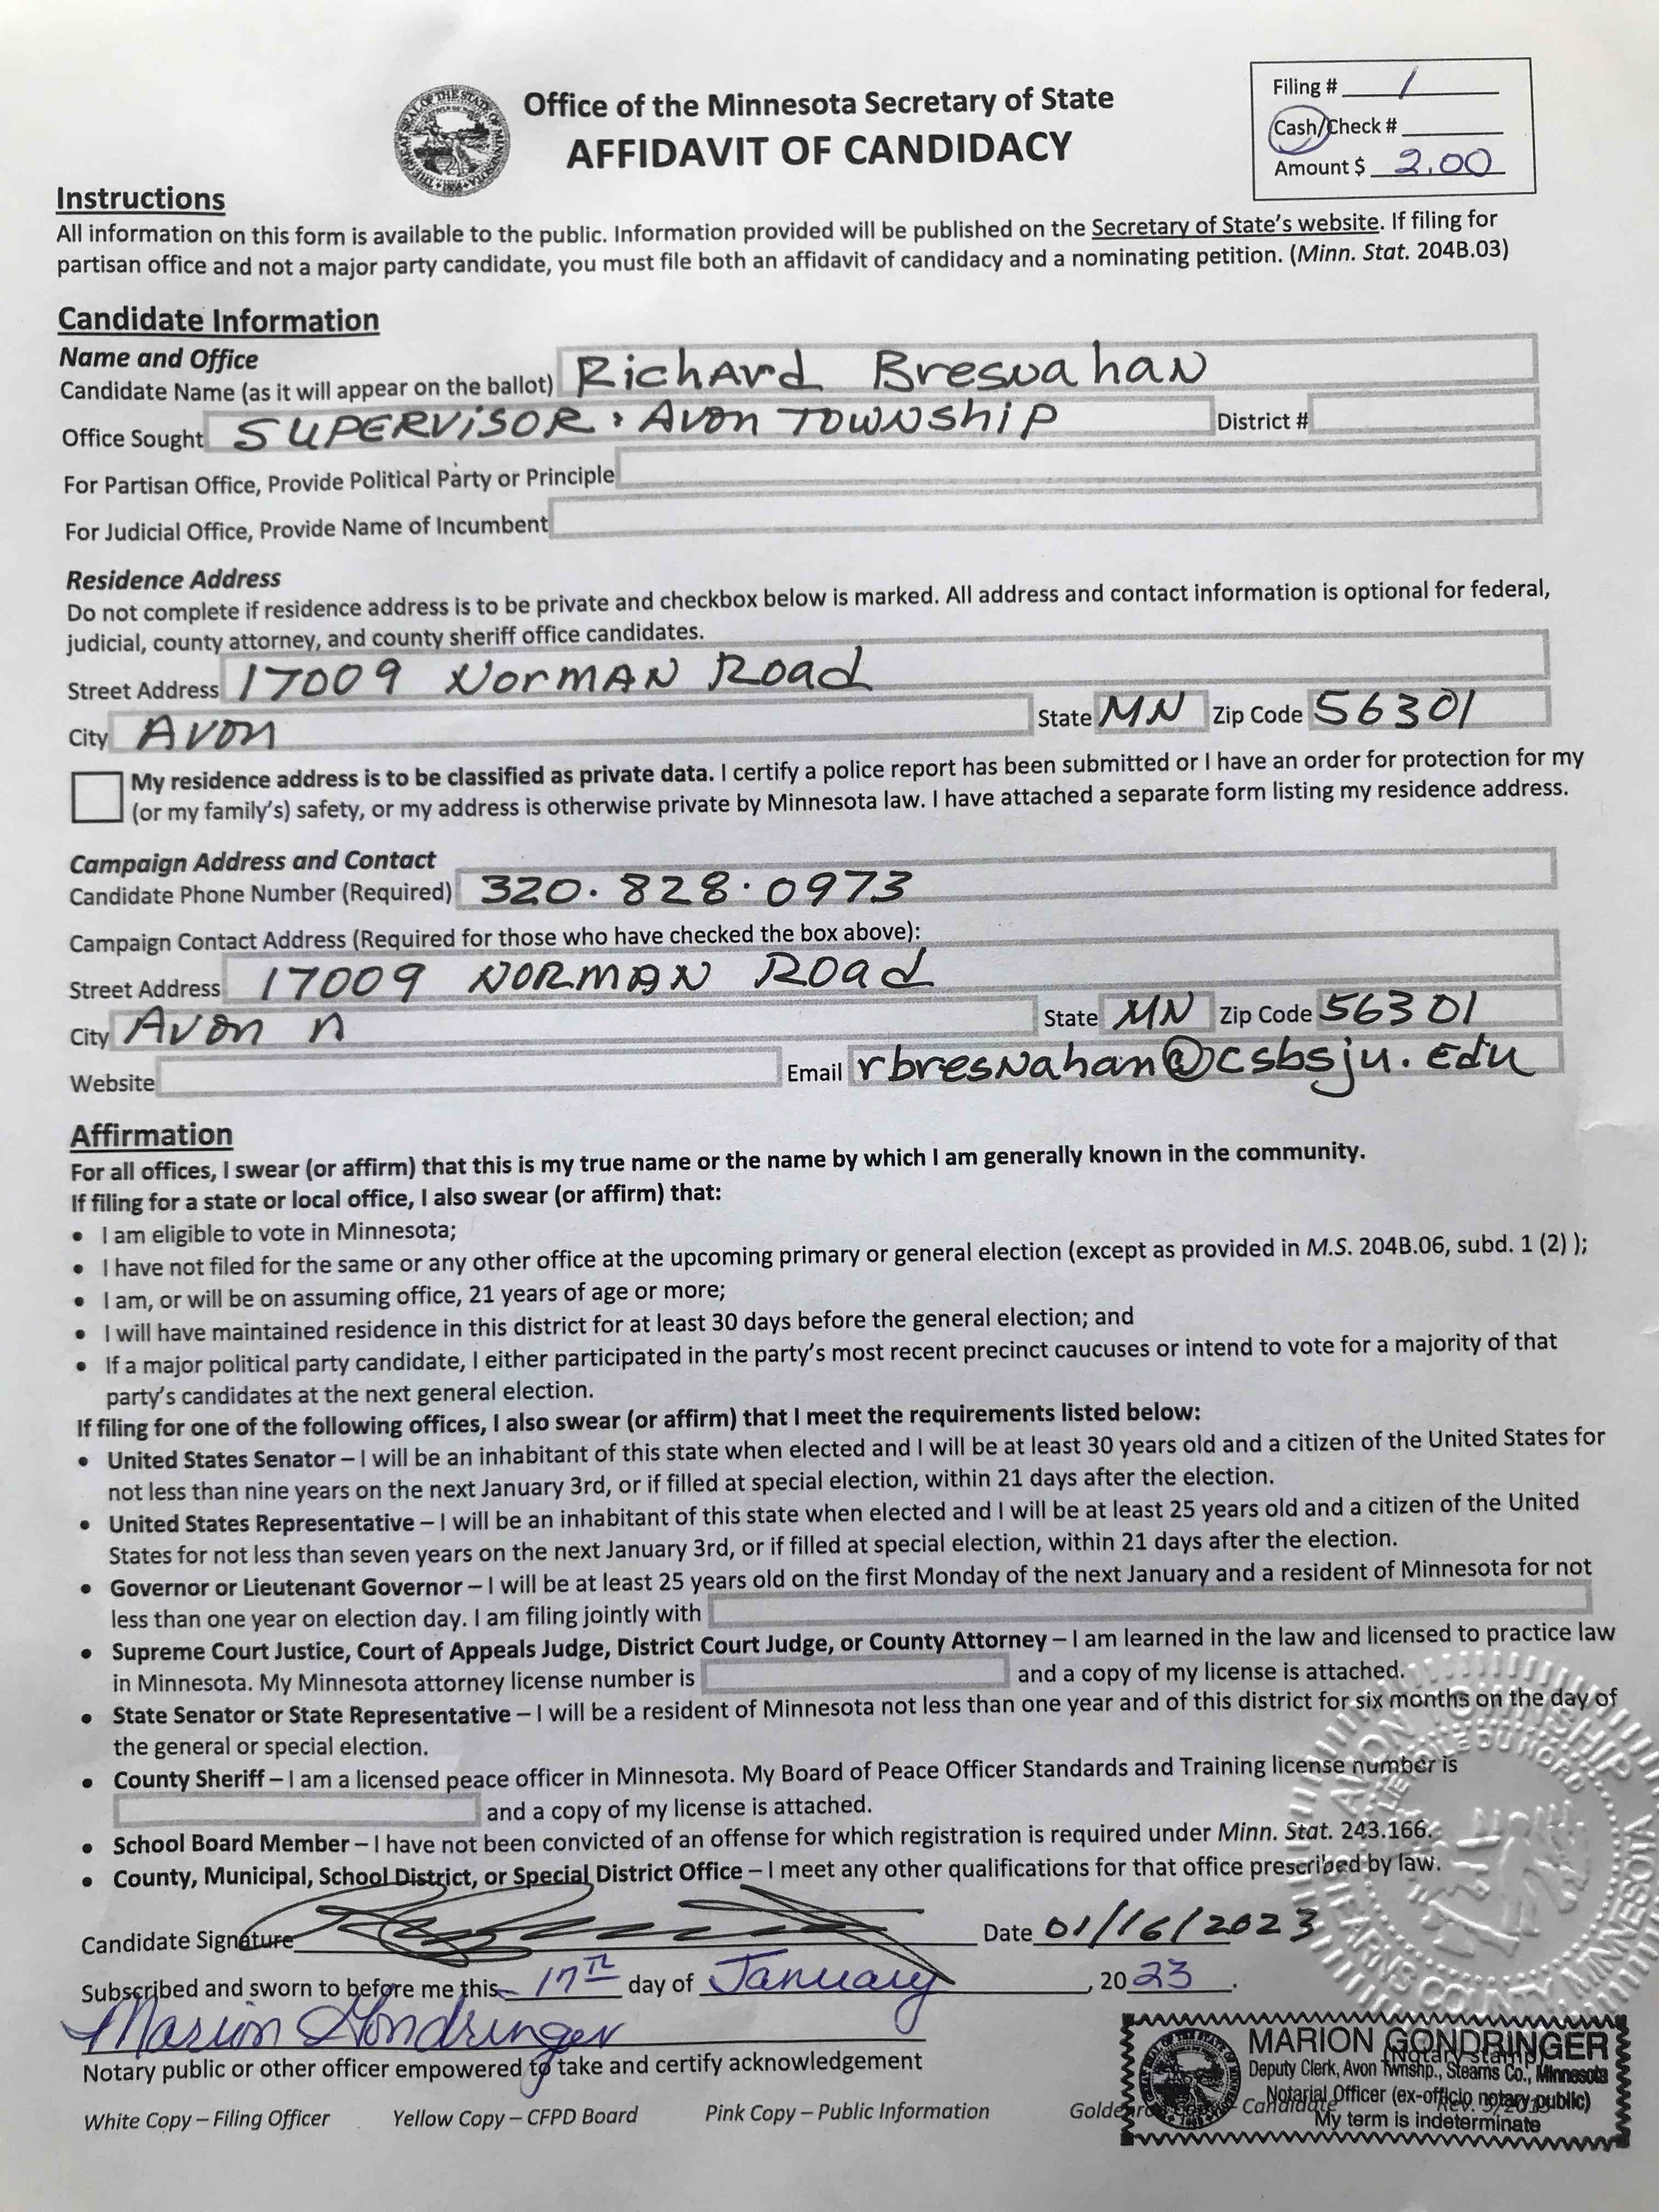 Office of the Minnesota Secretary of State
AFFIDAVIT OF CANDIDACY
Filing # 1
Cash/Check #
Amount $ 2.00
Instructions
All information on this form is available to the public. Information provided will be published on the Secretary of State's website. If filing for
partisan office and not a major party candidate, you must file both an affidavit of candidacy and a nominating petition. (Minn. Stat. 204B.03)
Candidate Information
Name and Office
Candidate Name (as it will appear on the ballot) RichArd BresNahaN
Office Sought SUPERViSOR, Avon TOWNShiP District #
For Partisan Office, Provide Political Party or Principle
For Judicial Office, Provide Name of Incumbent
Residence Address
Do not complete if residence address is to be private and checkbox below is marked. All address and contact information is optional for federal,
judicial, county attorney, and county sheriff office candidates.
Street Address 17009 NorMAN Road
City Avon State MN Zip Code 56301
My residence address is to be classified as private data. I certify a police report has been submitted or I have an order for protection for my
(or my family's) safety, or my address is otherwise private by Minnesota law. I have attached a separate form listing my residence address.
Campaign Address and Contact
Candidate Phone Number (Required) 320·828·0973
Campaign Contact Address (Required for those who have checked the box above):
Street Address 17009 NORMAN Road
City Avon n State MN Zip Code 56301
Website Email rbresNahan@csbsju.Edu
Affirmation
For all offices, I swear (or affirm) that this is my true name or the name by which I am generally known in the community.
If filing for a state or local office, I also swear (or affirm) that:
• I am eligible to vote in Minnesota;
• I have not filed for the same or any other office at the upcoming primary or general election (except as provided in M.S. 204B.06, subd. 1 (2) );
• I am, or will be on assuming office, 21 years of age or more;
• I will have maintained residence in this district for at least 30 days before the general election; and
• If a major political party candidate, I either participated in the party's most recent precinct caucuses or intend to vote for a majority of that
party's candidates at the next general election.
If filing for one of the following offices, I also swear (or affirm) that I meet the requirements listed below:
• United States Senator – I will be an inhabitant of this state when elected and I will be at least 30 years old and a citizen of the United States for
not less than nine years on the next January 3rd, or if filled at special election, within 21 days after the election.
• United States Representative – I will be an inhabitant of this state when elected and I will be at least 25 years old and a citizen of the United
States for not less than seven years on the next January 3rd, or if filled at special election, within 21 days after the election.
• Governor or Lieutenant Governor – I will be at least 25 years old on the first Monday of the next January and a resident of Minnesota for not
less than one year on election day. I am filing jointly with
• Supreme Court Justice, Court of Appeals Judge, District Court Judge, or County Attorney – I am learned in the law and licensed to practice law
in Minnesota. My Minnesota attorney license number is and a copy of my license is attached.
• State Senator or State Representative – I will be a resident of Minnesota not less than one year and of this district for six months on the day of
the general or special election.
• County Sheriff – I am a licensed peace officer in Minnesota. My Board of Peace Officer Standards and Training license number is
and a copy of my license is attached.
• School Board Member – I have not been convicted of an offense for which registration is required under Minn. Stat. 243.166.
• County, Municipal, School District, or Special District Office – I meet any other qualifications for that office prescribed by law.
AVON TOWNSHIP
L'ETOILE DU NORD
STEARNS COUNTY, MINNESOTA
Candidate Signature Date 01/16/2023
Subscribed and sworn to before me this 17th day of January, 2023.
Marion Gondringer
Notary public or other officer empowered to take and certify acknowledgement
MARION GONDRINGER
(Notary stamp)
Deputy Clerk, Avon Twnshp., Stearns Co., Minnesota
Notarial Officer (ex-officio notary public)
My term is indeterminate
White Copy – Filing Officer Yellow Copy – CFPD Board Pink Copy – Public Information Candidate